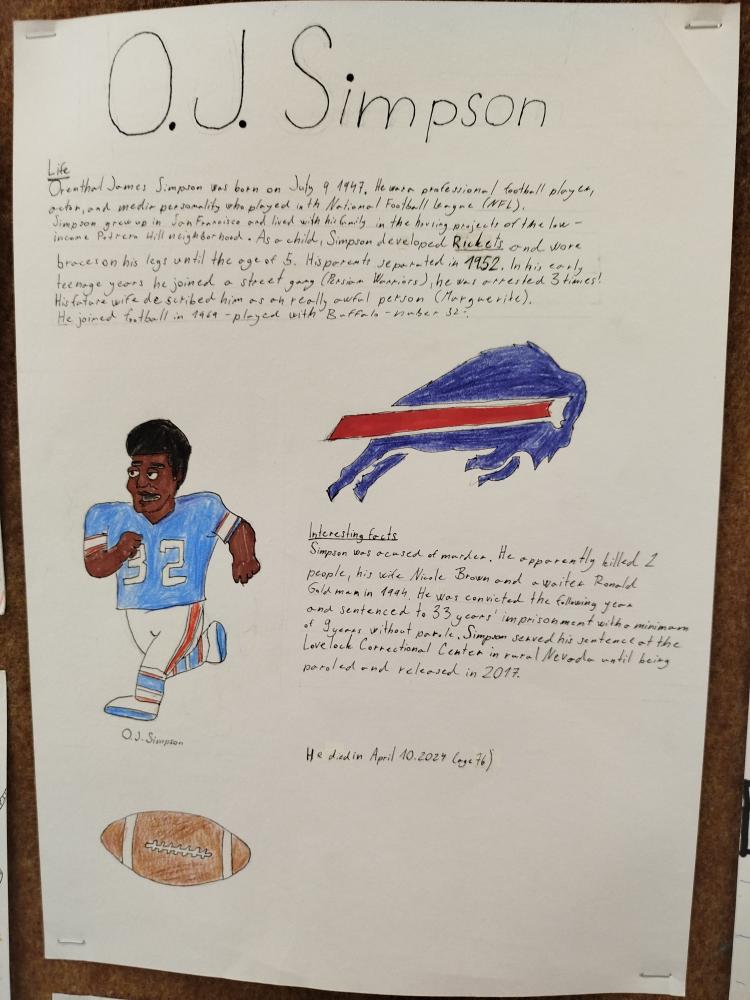 O.J. Simpson
Life
Orenthal James Simpson was born on July 9 1947. He was a professional football player,
actor, and media personality who played in th National Football League (NFL).
Simpson grew up in San Francisco and lived with his family in the housing projects of the low-
income Potrero Hill neighborhood. As a child, Simpson developed Rickets and wore
braces on his legs until the age of 5. His parents separated in 1952. In his early
teenage years he joined a street gang (Persian Warriors), he was arrested 3 times!
His future wife described him as an really awful person (Marguerite).
He joined football in 1969 - played with Buffalo - number 32.
32
Interesting facts
Simpson was acused of murder. He apparently killed 2
people, his wife Nicole Brown and a waiter Ronald
Goldman in 1994. He was convicted the following year
and sentenced to 33 years' imprisonment with a minimum
of 9 years without parole. Simpson served his sentence at the
Lovelock Correctional Center in rural Nevada until being
paroled and released in 2017.
O.J. Simpson
He died in April 10. 2024 (age 76)